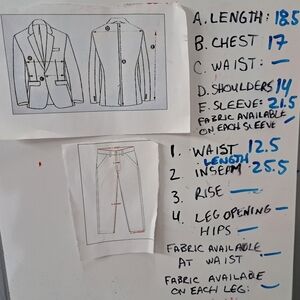 A. LENGTH: 18.5
B. CHEST 17
C. WAIST: -
D. SHOULDERS 14
E. SLEEVE: 21.5
FABRIC AVAILABLE
ON EACH SLEEVE -
1. WAIST 12.5
LENGTH
2. INSEAM 25.5
3. RISE -
4. LEG OPENING -
HIPS -
FABRIC AVAILABLE
AT WAIST -
FABRIC AVAILABLE
ON EACH LEG: -